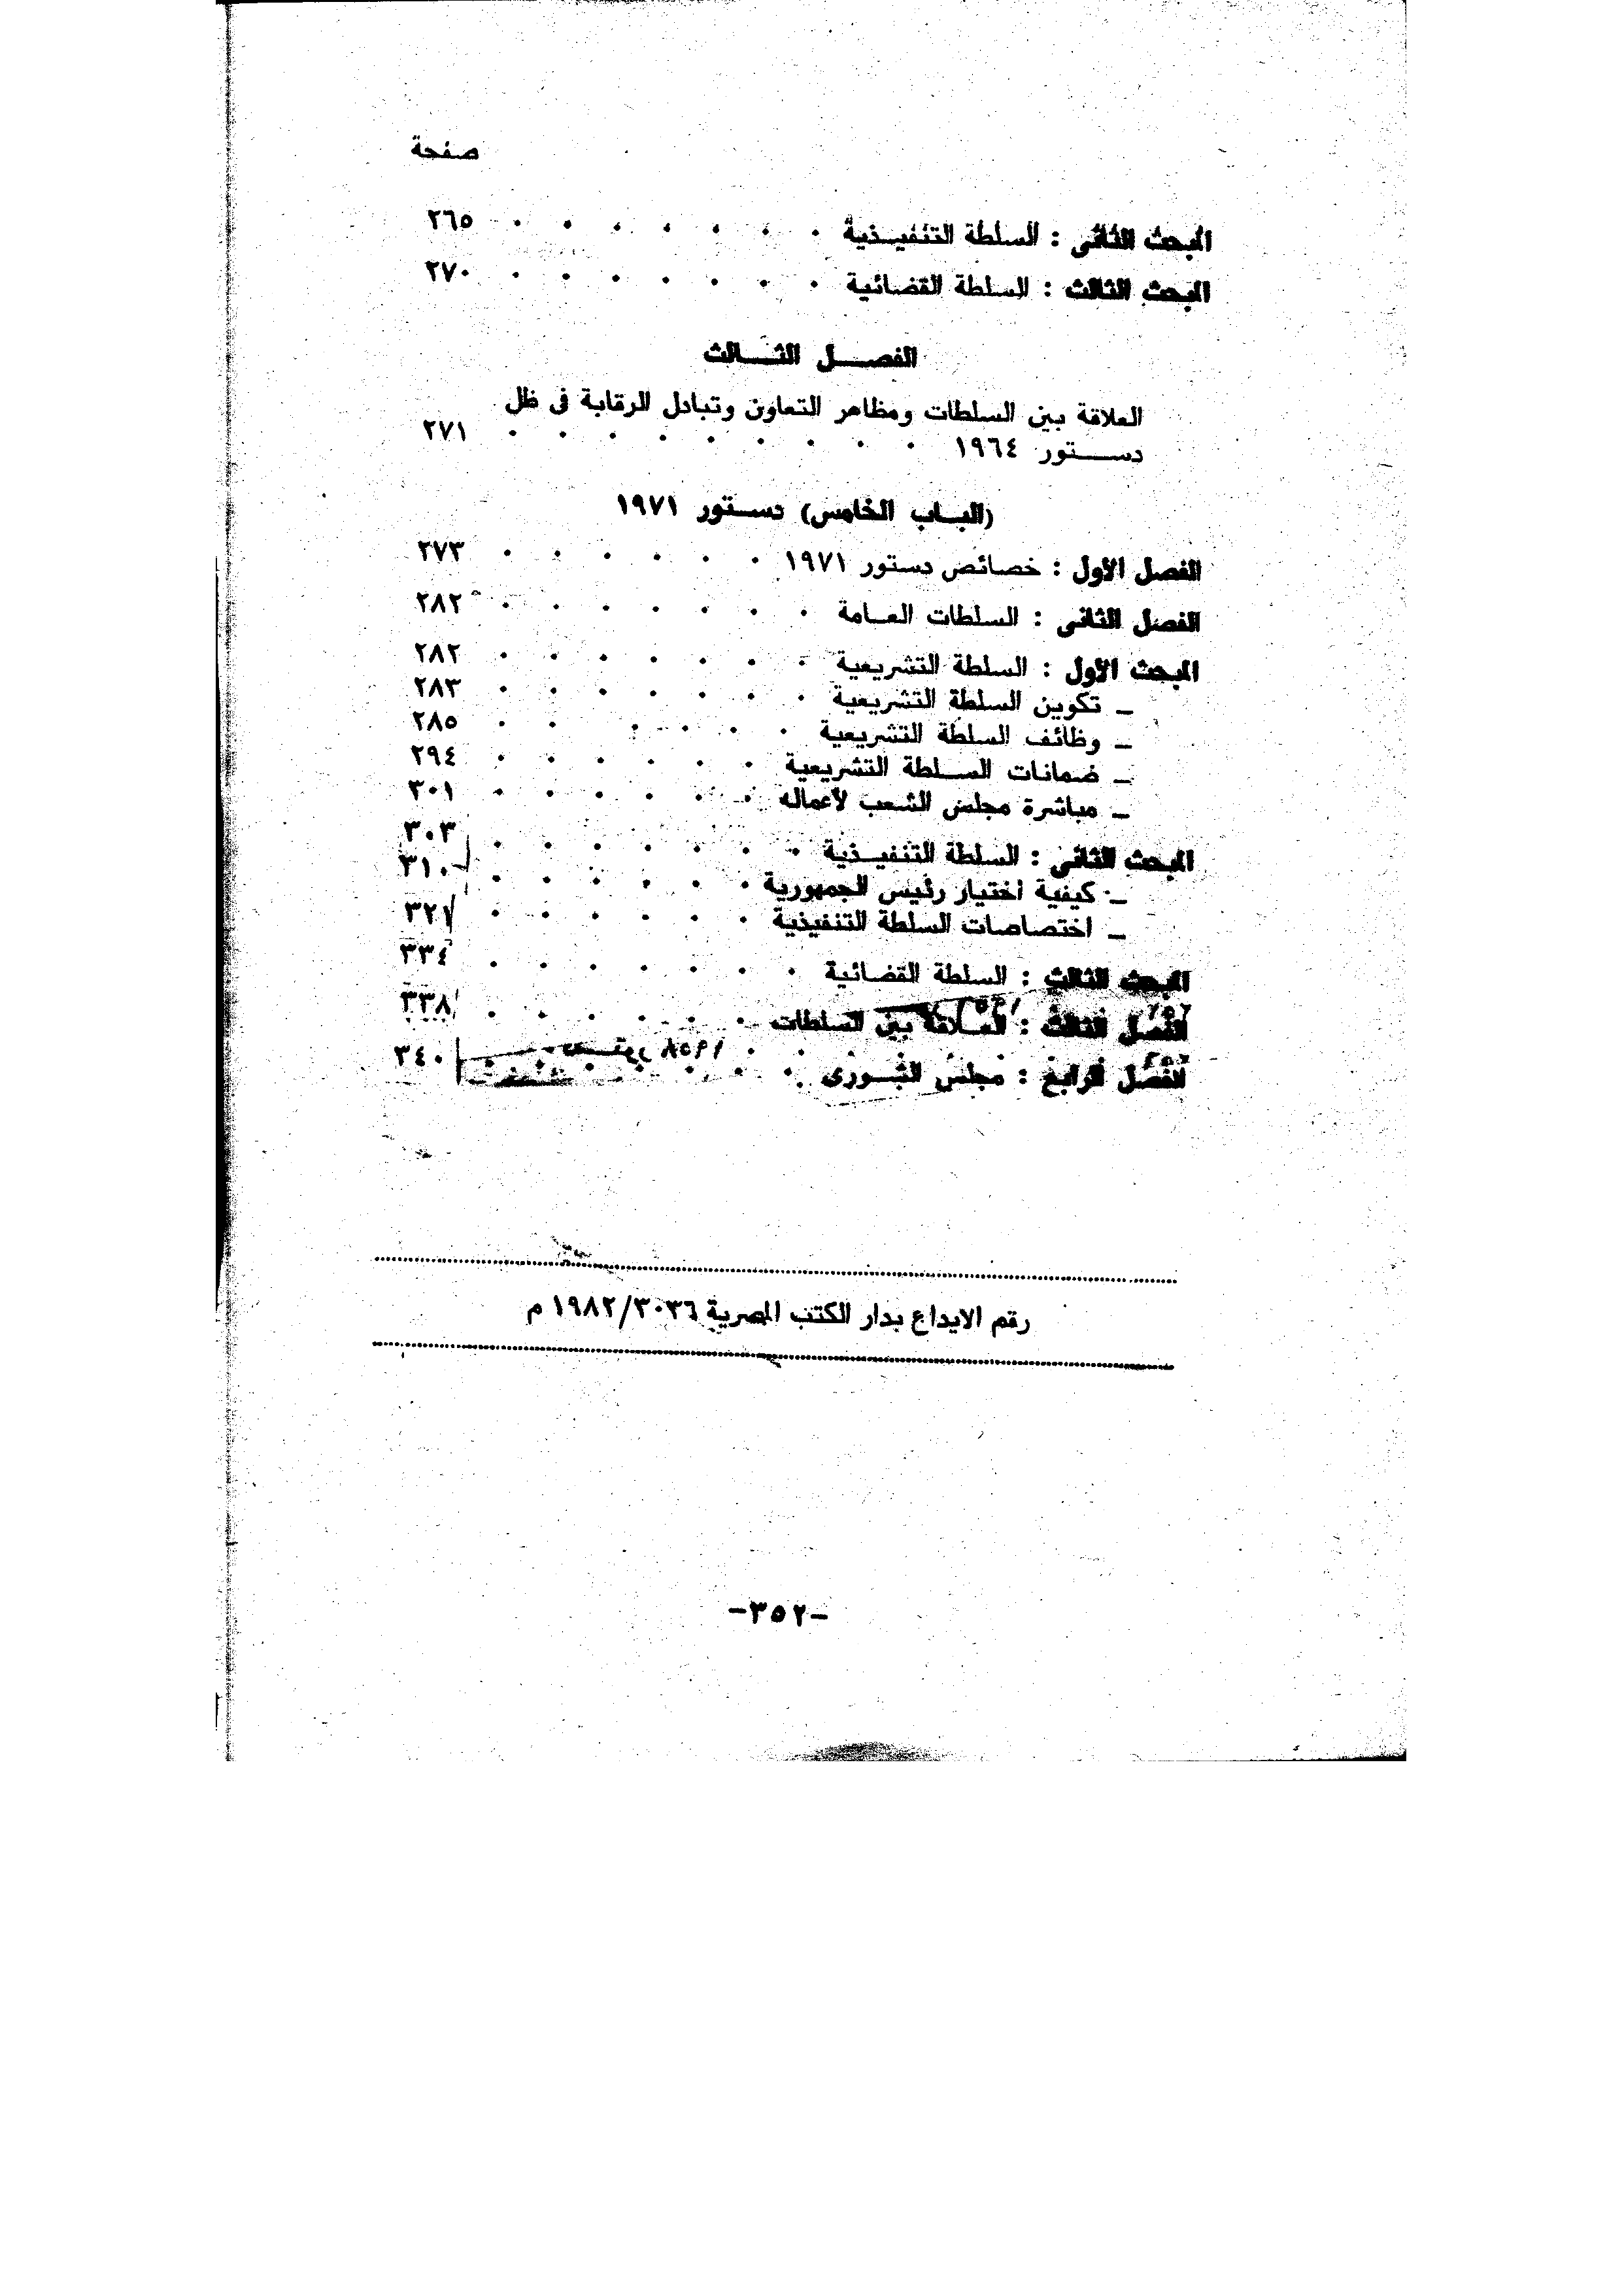 صفحة
المبحث الثانى : السلطة التنفيــذية . . . . . . . ٢٦٥
المبحث الثالث : السلطة القضائية . . . . . . . ٢٧٠
الفصـــل الثـــالث
العلاقة بين السلطات ومظاهر التعاون وتبادل الرقابة فى ظل
دســـتور ١٩٦٤ . . . . . . . . . ٢٧١
(البــاب الخامس) دســتور ١٩٧١
الفصل الأول : خصائص دستور ١٩٧١ . . . . . . ٢٧٣
الفصل الثانى : السلطات العــامة . . . . . . . ٢٨٢
المبحث الأول : السلطة التشريعية . . . . . . . ٢٨٢
ــ تكوين السلطة التشريعية . . . . . . . ٢٨٣
ــ وظائف السلطة التشريعية . . . . . . ٢٨٥
ــ ضمانات الســلطة التشريعية . . . . . . ٢٩٤
ــ مباشرة مجلس الشعب لأعماله . . . . . . ٣٠١
المبحث الثانى : السلطة التنفيــذية . . . . . . . ٣٠٣
ــ كيفية اختيار رئيس الجمهورية . . . . . . ٣١٠
ــ اختصاصات السلطة التنفيذية . . . . . . ٣٢١
المبحث الثالث : السلطة القضائية . . . . . . . ٣٣٤
الفصل الثالث : العــلاقة بين السلطات . . . . . . ٣٣٨
الفصل الرابع : مجلس الشــورى . . . . . . . ٣٤٠
رقم الايداع بدار الكتب المصرية ٣٠٣٦/١٩٨٢ م
-٣٥٢-